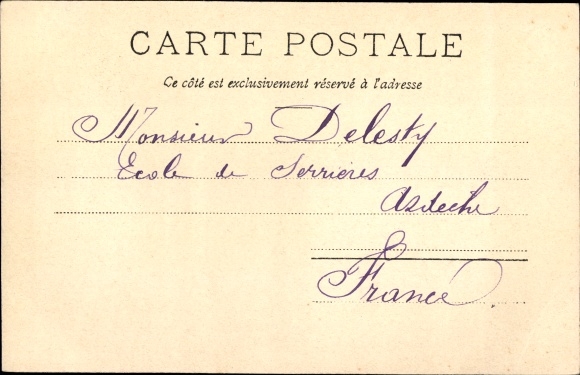 CARTE POSTALE
Ce côté est exclusivement réservé à l'adresse
Monsieur Delesty
Ecole de Serrières
Ardèche
France.